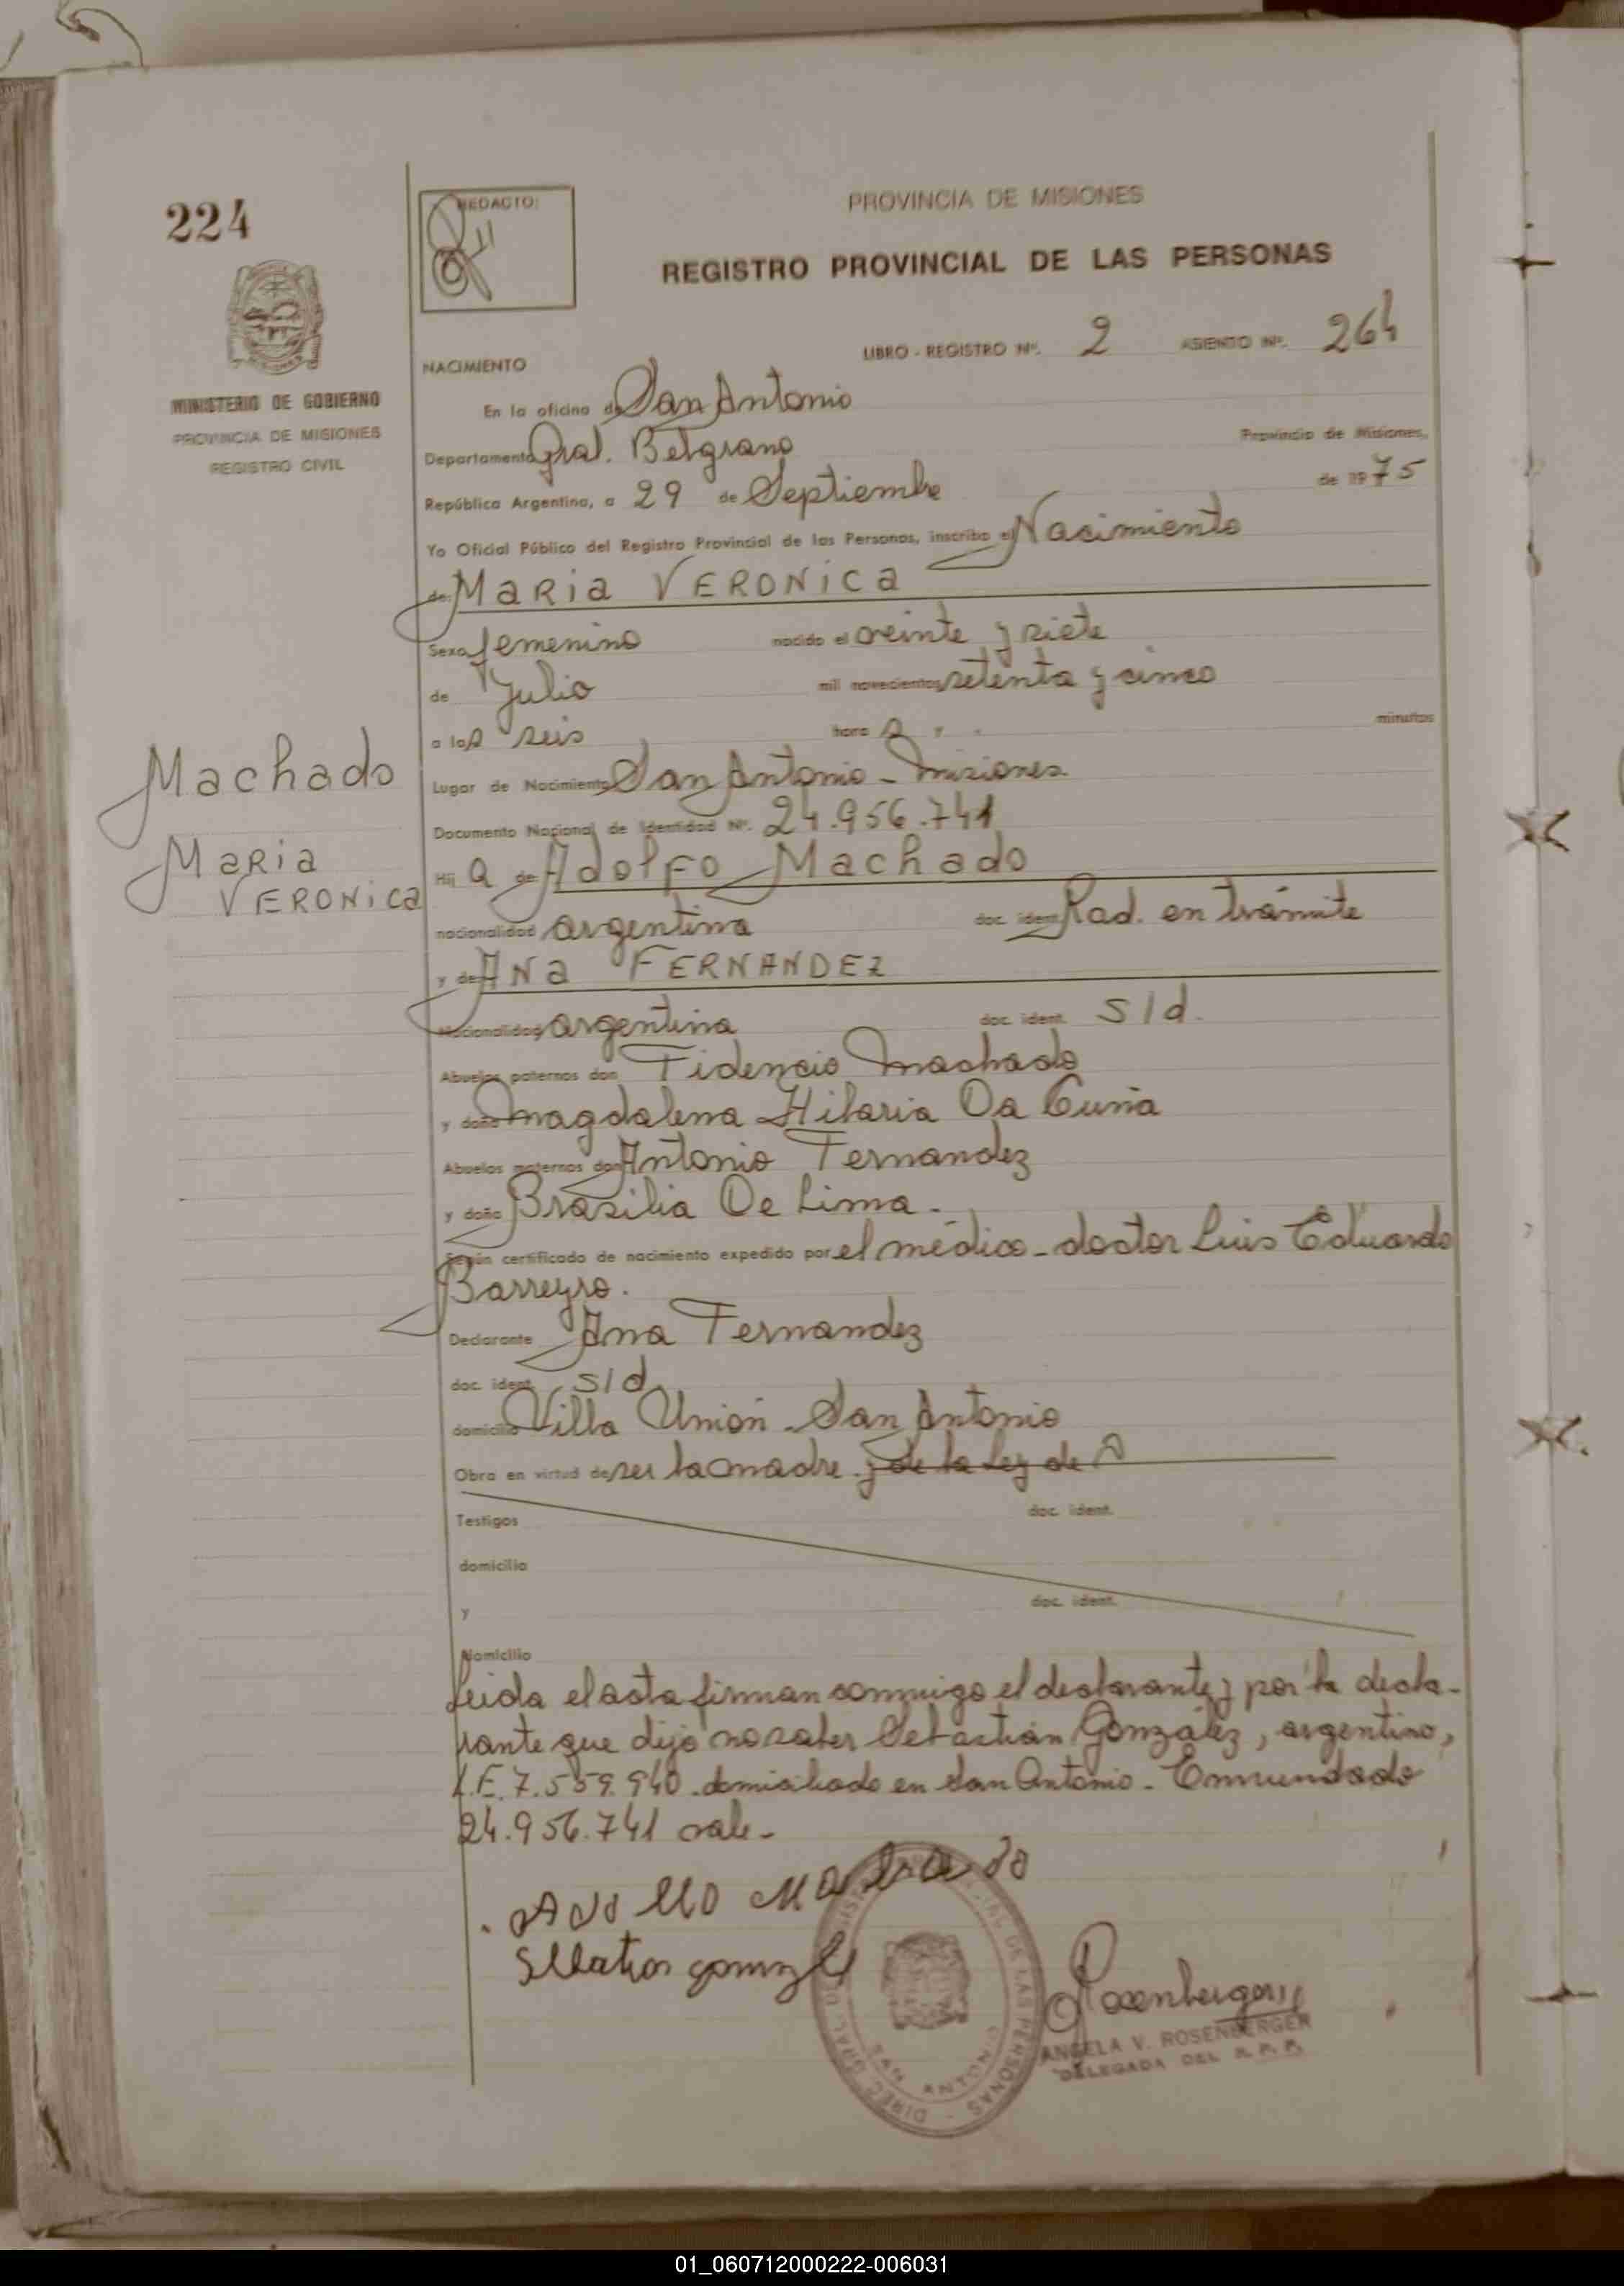 224
REDACTO:
PROVINCIA DE MISIONES
REGISTRO PROVINCIAL DE LAS PERSONAS
MINISTERIO DE GOBIERNO
PROVINCIA DE MISIONES
REGISTRO CIVIL
LIBRO - REGISTRO Nº. 2 ASIENTO Nº. 264
NACIMIENTO
En la oficina de San Antonio
Departamento Gral. Belgrano Provincia de Misiones,
República Argentina, a 29 de Septiembre de 1975
Yo Oficial Público del Registro Provincial de las Personas, inscribo el Nacimiento
de: MaRia VERONiCa
Sexo femenino nacido el veinte y siete
de Julio mil novecientos setenta y cinco
a las seis hora s y minutos
Lugar de Nacimiento San Antonio - Misiones
Documento Nacional de Identidad Nº. 24.956.741
Machado
MaRia
VERONiCa
Hij a de Adolfo Machado
nacionalidad argentina doc. ident. Rad. en trámite
y de ANa FERNANDEZ
Nacionalidad argentina doc. ident. s/d.
Abuelos paternos don Fidencio Machado
y doña Magdalena Hilaria Da Cunha
Abuelos maternos don Antonio Fernandez
y doña Brasilia De Lima.
Según certificado de nacimiento expedido por el médico - doctor Luis Eduardo
Barreyro.
Declarante Ana Fernandez
doc. ident. s/d
domicilio Villa Unión - San Antonio
Obra en virtud de ser la madre. y de la ley de
Testigos doc. ident.
domicilio
y doc. ident.
domicilio
Leida el acta firman conmigo el declarante y por la decla-
rante que dijo no saber Sebastián González, argentino,
L.E. 7.559.940 domiciliado en San Antonio - Enmendado
24.956.741 vale -
Adolfo Machado
Rosenberger
ANGELA V. ROSENBERGER
DELEGADA DEL R. P. P.
SAN ANTONIO
DE LAS PERSONAS - DIREC. GRAL.
01_060712000222-006031